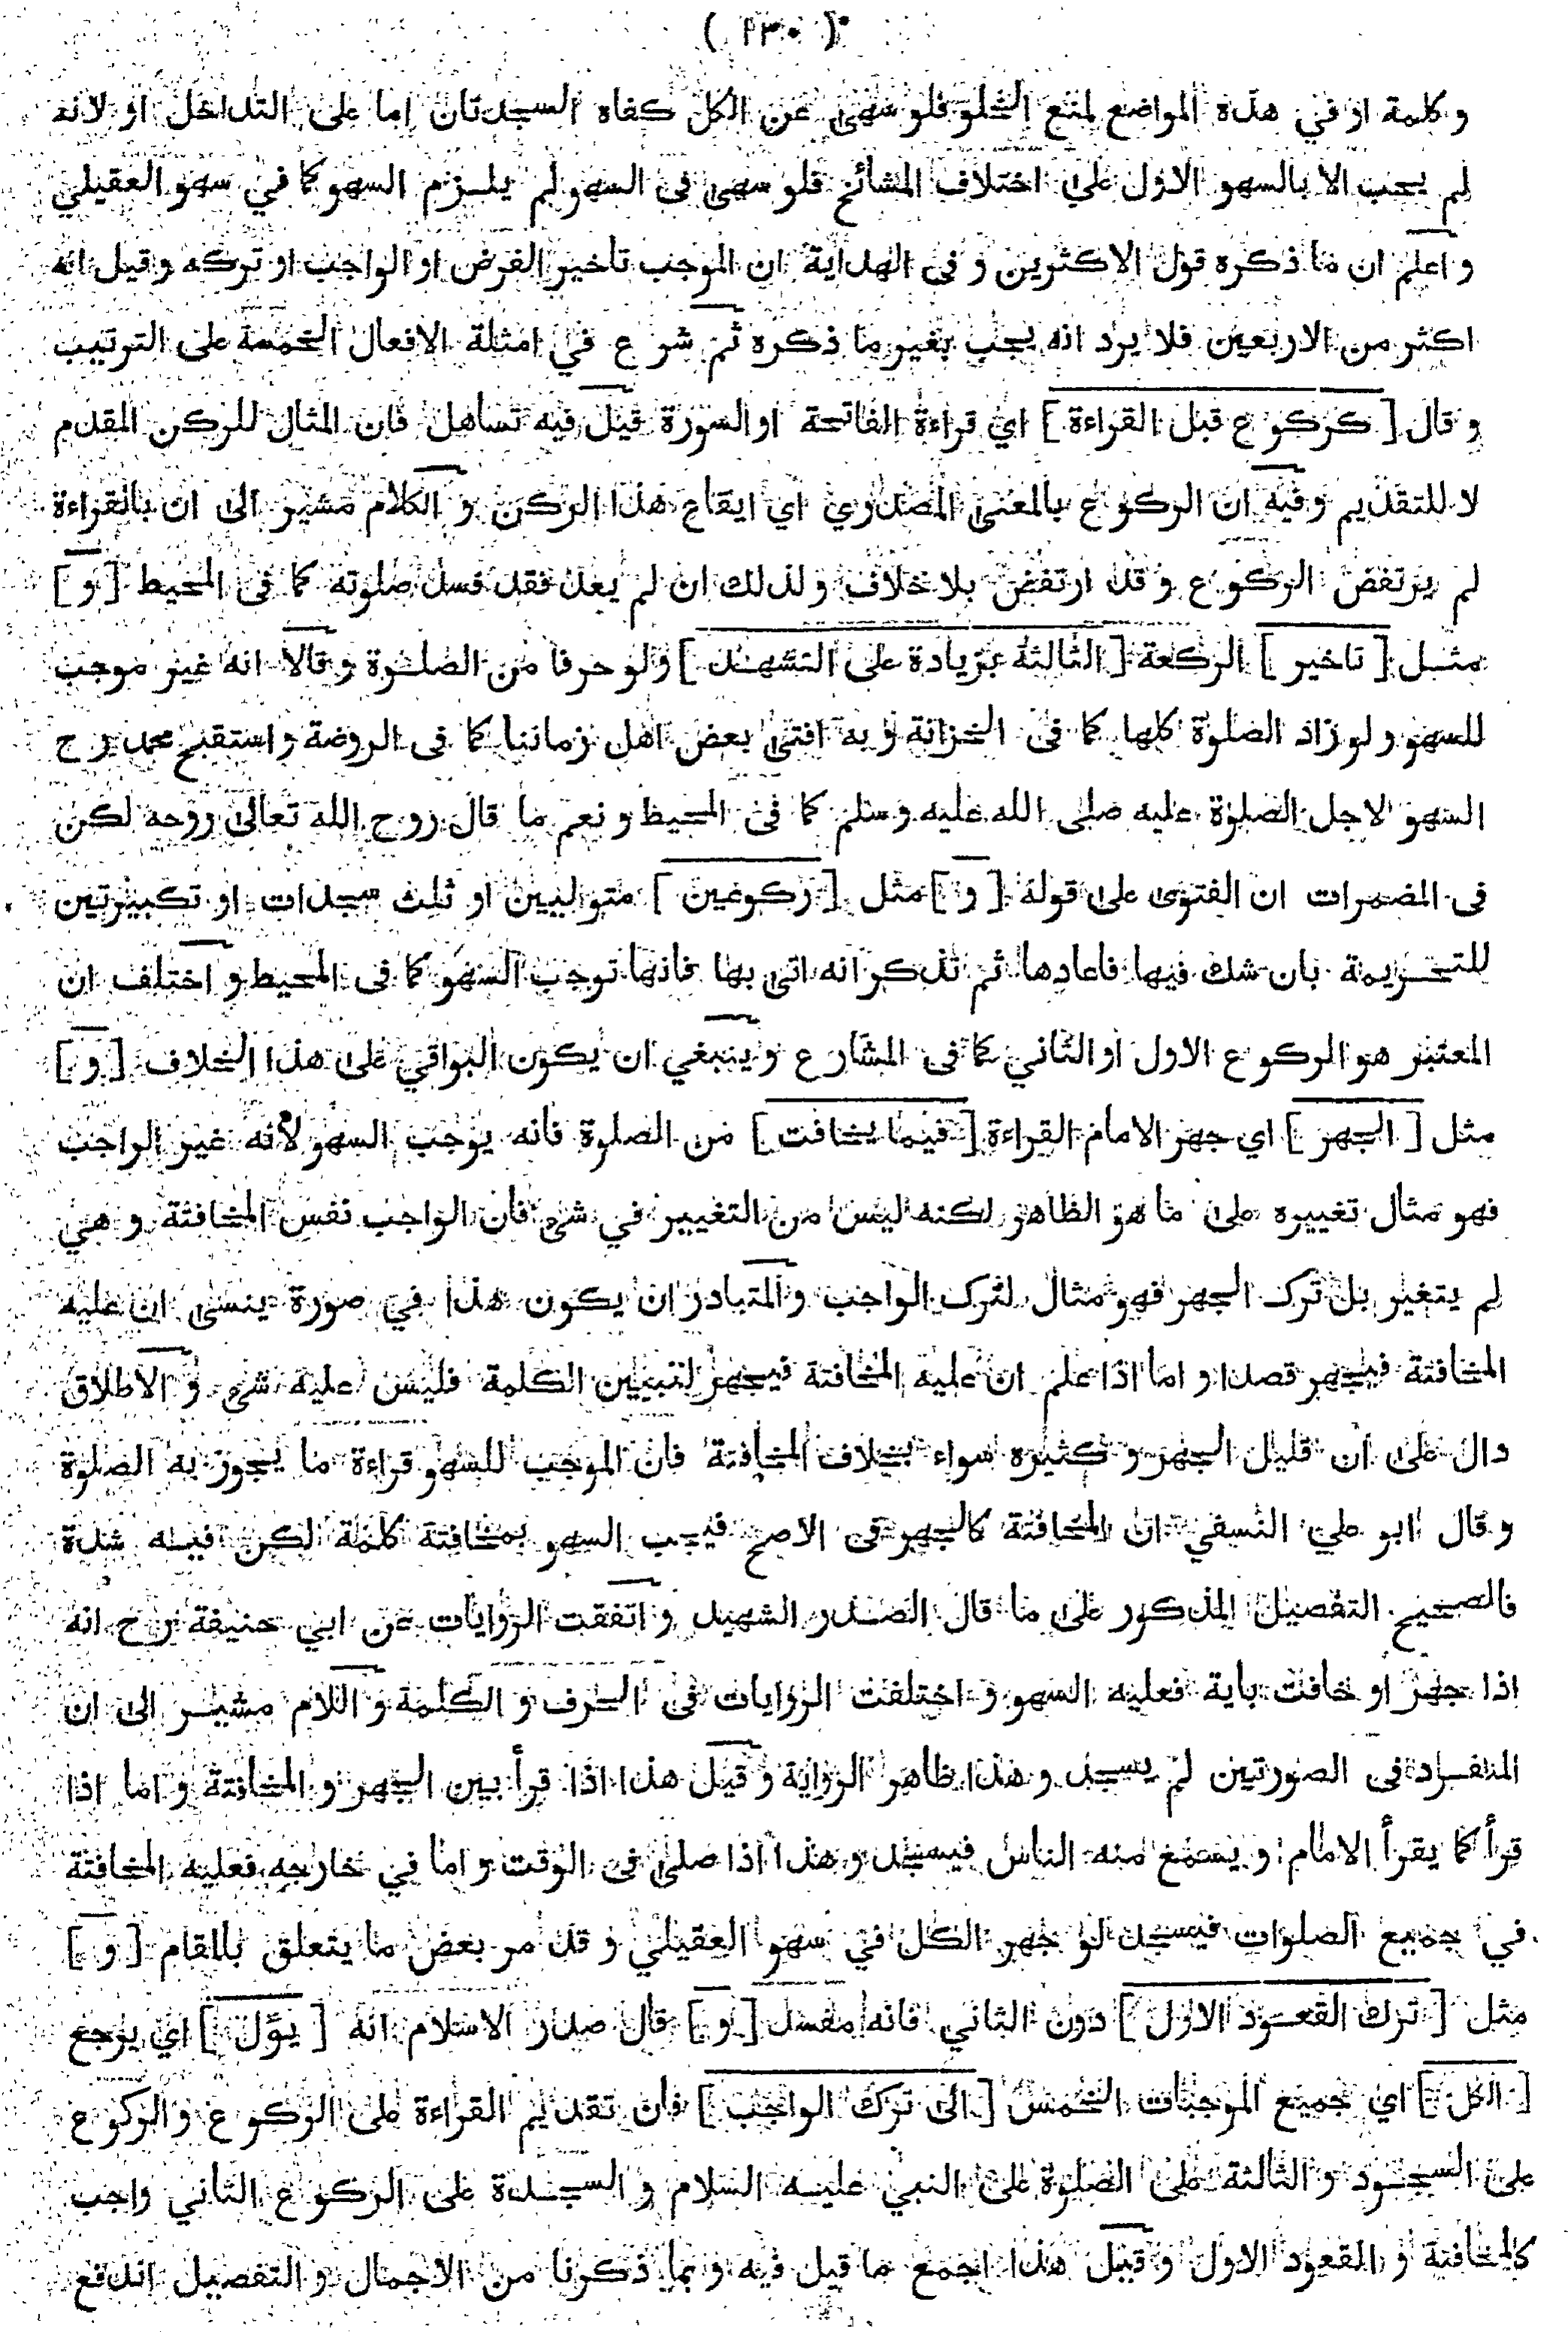 ( ١٣٠ )
و كلمة او في هذه المواضع لمنع الخلو فلو سهى عن الكل كفاه السجدتان اما على التداخل او لانه
لم يجب الا بالسهو الاول على اختلاف المشائخ فلو سهى فى السهو لم يلزم السهو كما في سهو العقيلي
و اعلم ان ما ذكره قول الاكثرين و فى الهداية ان الموجب تاخير الفرض او الواجب او تركه و قيل انه
اكثر من الاربعين فلا يرد انه يجب بغير ما ذكره ثم شرع في امثلة الافعال الخمسة على الترتيب
و قال [ كركوع قبل القراءة ] اي قراءة الفاتحة او السورة قيل فيه تساهل فان المثال للركن المقدم
لا للتقديم و فيه ان الركوع بالمعنى المصدري اي ايقاع هذا الركن و الكلام مشير الى ان بالقراءة
لم يرتفض الركوع و قد ارتفض بلا خلاف و لذلك ان لم يعد فقد فسد صلوته كما فى المحيط [ و ]
مثل [ تاخير ] الركعة [ الثالثة بزيادة على التشهد ] و لو حرفا من الصلوة و قالا انه غير موجب
للسهو و لو زاد الصلوة كلها كما فى الخزانة و به افتى بعض اهل زماننا كما فى الروضة و استقبح محمد رح
السهو لاجل الصلوة عليه صلى الله عليه و سلم كما فى المحيط و نعم ما قال روح الله تعالى روحه لكن
فى المضمرات ان الفتوى على قوله [ و ] مثل [ ركوعين ] متواليين او ثلث سجدات او تكبيرتين
للتحريمة بان شك فيها فاعادها ثم تذكر انه اتى بها فانها توجب السهو كما فى المحيط و اختلف ان
المعتبر هو الركوع الاول او الثاني كما فى المشارع و ينبغي ان يكون البواقي على هذا الخلاف [ و ]
مثل [ الجهر ] اي جهر الامام القراءة [ فيما يخافت ] من الصلوة فانه يوجب السهو لأنه غير الواجب
فهو مثال تغييره على ما هو الظاهر لكنه ليس من التغيير في شئ فان الواجب نفس المخافتة و هي
لم يتغير بل ترك الجهر فهو مثال لترك الواجب و المتبادر ان يكون هذا في صورة ينسى ان عليه
المخافتة فيجهر قصدا و اما اذا علم ان عليه المخافتة فيجهر لتبيين الكلمة فليس عليه شئ و الاطلاق
دال على ان قليل الجهر و كثيره سواء بخلاف المخافتة فان الموجب للسهو قراءة ما يجوز به الصلوة
و قال ابو علي النسفي ان المخافتة كالجهر فى الاصح فيجب السهو بمخافتة كلمة لكن فيه شدة
فالصحيح التفصيل المذكور على ما قال الصدر الشهيد و اتفقت الروايات عن ابي حنيفة رح انه
اذا جهر او خافت باية فعليه السهو و اختلفت الروايات فى الحرف و الكلمة و اللام مشير الى ان
المنفرد فى الصورتين لم يسجد و هذا ظاهر الرواية و قيل هذا اذا قرأ بين الجهر و المخافتة و اما اذا
قرأ كما يقرأ الامام و يسمع منه الناس فيسجد و هذا اذا صلى فى الوقت و اما في خارجه فعليه المخافتة
في جميع الصلوات فيسجد لو جهر الكل في سهو العقيلي و قد مر بعض ما يتعلق بالمقام [ و ]
مثل [ ترك القعود الاول ] دون الثاني فانه مفسد [ و ] قال صدر الاسلام انه [ يؤل ] اي يرجع
[ الكل ] اي جميع الموجبات الخمس [ الى ترك الواجب ] فان تقديم القراءة على الركوع و الركوع
على السجود و الثالثة على الصلوة على النبي عليه السلام و السجدة على الركوع الثاني واجب
كالمخافتة و القعود الاول و قيل هذا اجمع ما قيل فيه و بما ذكرنا من الاجمال و التفصيل اندفع